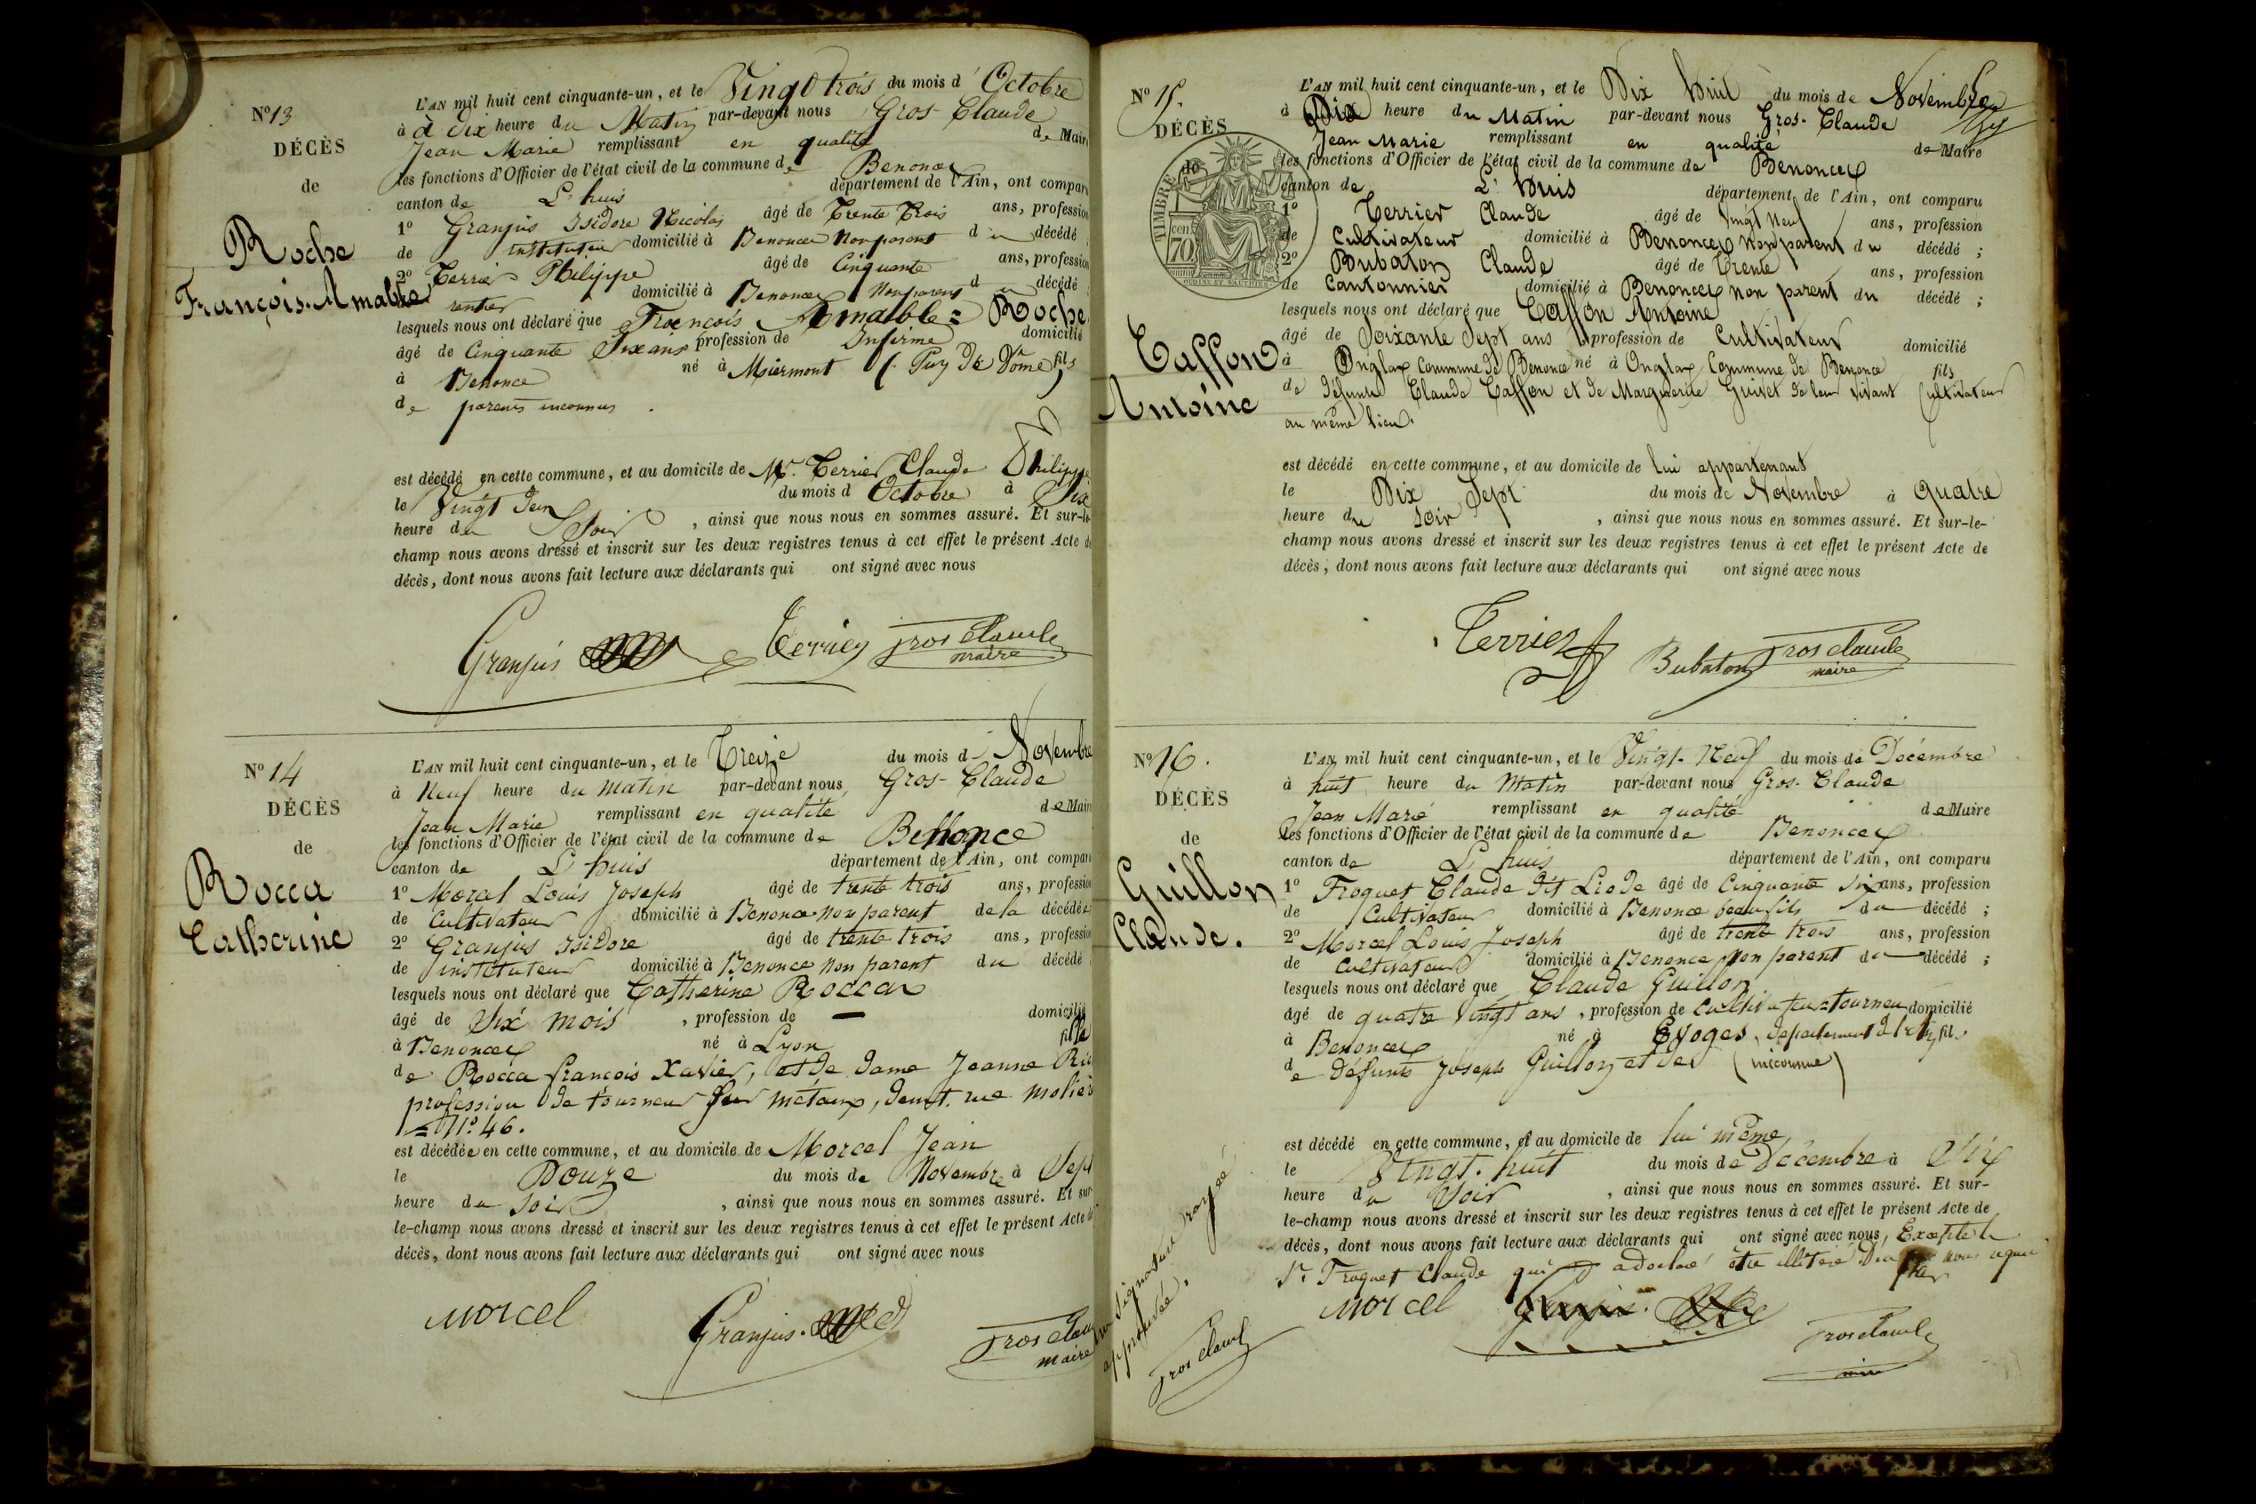 N° 13
DÉCÈS
de
Roche
François. Amable
L'AN mil huit cent cinquante-un, et le Vingt trois du mois d' Octobre
à à dix heure du Matin par-devant nous Gros-Claude
Jean Marie remplissant en qualité de Maire
les fonctions d'Officier de l'état civil de la commune de Benonce
canton de L'huis département de l'Ain, ont comparu
1° Granjus Isidore Nicolas âgé de Trente Trois ans, profession
de instituteur domicilié à Benonce Non parent du décédé ;
2° Terrier Philippe âgé de Cinquante ans, profession
de rentier domicilié à Benonce Non parent du décédé ;
lesquels nous ont déclaré que François Amable = Roche
âgé de Cinquante Six ans profession de Infirme domicilié
à Benonce né à Miermont (Puy de Dôme) fils
de parents inconnus.
est décédé en cette commune, et au domicile de Mr. Terrier Claude Philippe
le Vingt deux du mois d Octobre à Six
heure du Soir , ainsi que nous nous en sommes assuré. Et sur-le-
champ nous avons dressé et inscrit sur les deux registres tenus à cet effet le présent Acte de
décès, dont nous avons fait lecture aux déclarants qui ont signé avec nous
Granjus Terrier Gros Claude
maire
N° 14
DÉCÈS
de
Rocca
Catherine
L'AN mil huit cent cinquante-un, et le Treize du mois de Novembre
à Neuf heure du Matin par-devant nous Gros-Claude
Jean Marie remplissant en qualité de Maire
les fonctions d'Officier de l'état civil de la commune de Benonce
canton de L'huis département de l'Ain, ont comparu
1° Morcel Louis Joseph âgé de trente trois ans, profession
de Cultivateur domicilié à Benonce non parent de la décédée
2° Granjus Isidore âgé de trente trois ans, profession
de instituteur domicilié à Benonce Non parent du décédé
lesquels nous ont déclaré que Catherine Rocca
âgé de Six mois , profession de — domicilié
à Benonce né à Lyon fille
de Rocca françois Xavier, et de dame Jeanne
profession de tourneur sur métaux, demt. rue
= N° 46.
est décédée en cette commune, et au domicile de Morcel Jean
le Douze du mois de Novembre à Sept
heure du soir , ainsi que nous nous en sommes assuré. Et sur
le-champ nous avons dressé et inscrit sur les deux registres tenus à cet effet le présent Acte de
décès, dont nous avons fait lecture aux déclarants qui ont signé avec nous
Morcel Granjus. Gros Claude
maire
N° 15.
DÉCÈS
de
TIMBRE
70 cent
Taffon
Antoine
L'AN mil huit cent cinquante-un, et le Dix huit du mois de Novembre
à Dix heure du Matin par-devant nous Gros-Claude
Jean Marie remplissant en qualité de Maire
les fonctions d'Officier de l'état civil de la commune de Benonce
canton de L'huis département de l'Ain, ont comparu
1° Terrier Claude âgé de Vingt Neuf ans, profession
de Cultivateur domicilié à Benonce non parent du décédé ;
2° Bubaton Claude âgé de Trente ans, profession
de Cantonnier domicilié à Benonce non parent du décédé ;
lesquels nous ont déclaré que Taffon Antoine
âgé de Soixante Sept ans profession de Cultivateur domicilié
à Onglax Commune de Benonce né à Onglax Commune de Benonce fils
de défunts Claude Taffon et de Marguerite Guivet de leur vivant Cultivateur
au même lieu.
est décédé en cette commune, et au domicile de lui appartenant
le Dix Sept du mois de Novembre à quatre
heure du soir , ainsi que nous nous en sommes assuré. Et sur-le-
champ nous avons dressé et inscrit sur les deux registres tenus à cet effet le présent Acte de
décès, dont nous avons fait lecture aux déclarants qui ont signé avec nous
Terrier Bubaton Gros Claude
maire
N° 16.
DÉCÈS
de
Guillon
Claude.
L'AN mil huit cent cinquante-un, et le Vingt-Neuf du mois de Décembre
à huit heure du Matin par-devant nous Gros-Claude
Jean Marie remplissant en qualité de Maire
les fonctions d'Officier de l'état civil de la commune de Benonce
canton de L'huis département de l'Ain, ont comparu
1° Froquet Claude dit âgé de Cinquante six ans, profession
de Cultivateur domicilié à Benonce beau fils du décédé ;
2° Morcel Louis Joseph âgé de trente trois ans, profession
de Cultivateur domicilié à Benonce Non parent du décédé ;
lesquels nous ont déclaré que Claude Guillon
âgé de quatre Vingt ans , profession de Cultivateur = tourneur domicilié
à Benonce né à Evoges, département de l'Ain, fils
de défunts Joseph Guillon et de (inconnue)
est décédé en cette commune, et au domicile de lui même
le Vingt-huit du mois de Décembre à Six
heure du Soir , ainsi que nous nous en sommes assuré. Et sur-
le-champ nous avons dressé et inscrit sur les deux registres tenus à cet effet le présent Acte de
décès, dont nous avons fait lecture aux déclarants qui ont signé avec nous, Excepté le
Sr. Froquet Claude qui a déclaré être illitéré par nous requis
Morcel Gros Claude
maire
une Signature rayée
approuvée.
Gros Claude